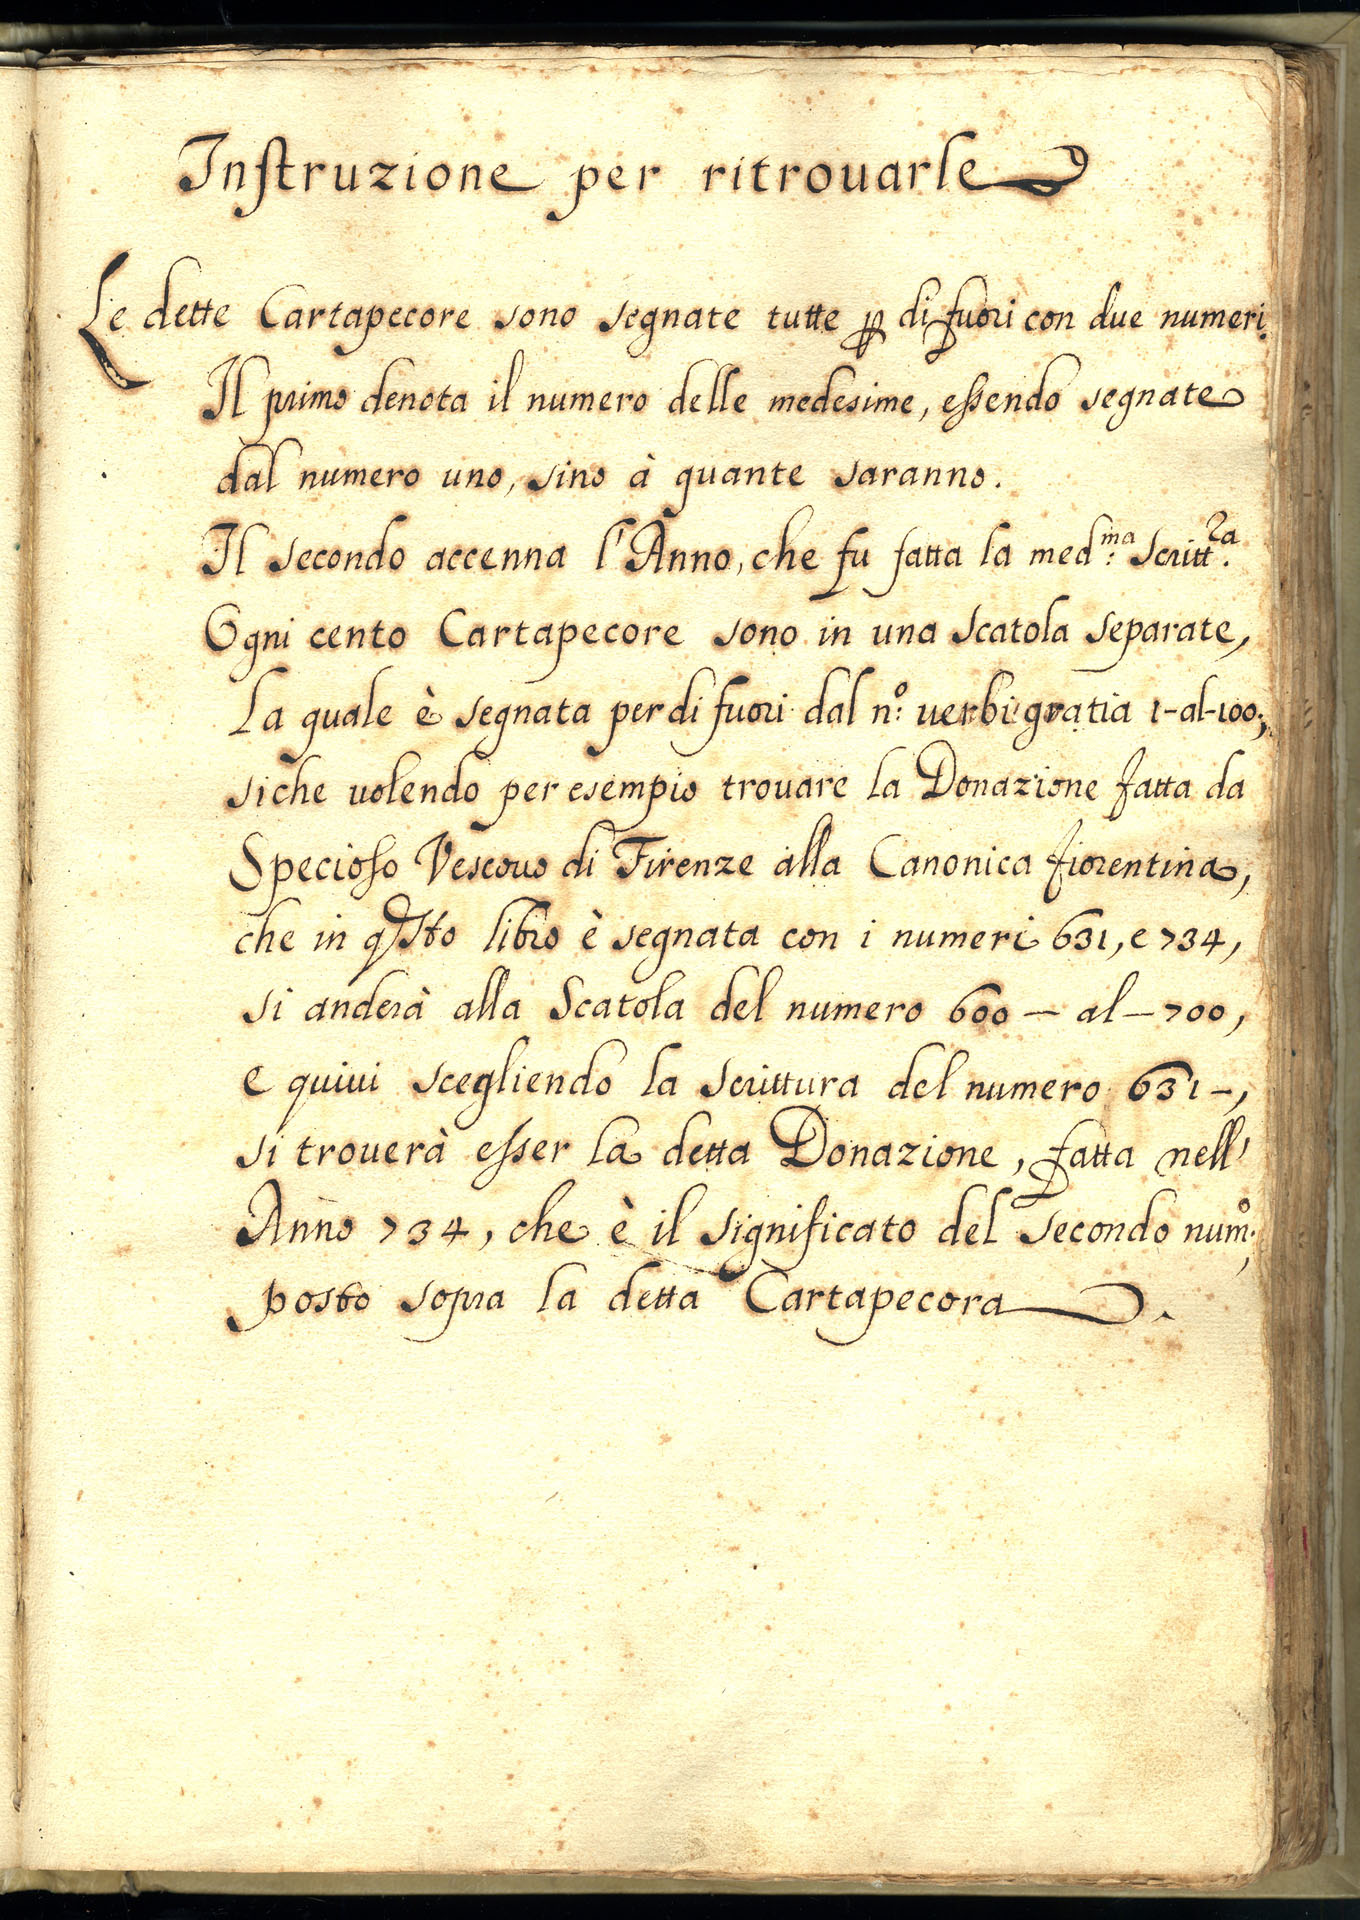 Instruzione per ritrouarle
Le dette Cartapecore sono segnate tutte p di fuori con due numeri.
Il primo denota il numero delle medesime, essendo segnate
dal numero uno, sino à quante saranno.
Il secondo accenna l'Anno, che fu fatta la med:ma Scritt.ra
Ogni cento Cartapecore sono in una Scatola separate,
La quale è segnata per di fuori dal n:o uerbi gratia 1-al-100;
siche uolendo per esempio trouare la Donazione fatta da
Specioso Vescouo di Firenze alla Canonica fiorentina,
che in qsto libro è segnata con i numeri 631, e 734,
si anderà alla Scatola del numero 600 - al - 700,
e quiui scegliendo la scrittura del numero 631-,
si trouerà esser la detta Donazione, fatta nell'
Anno 734, che è il significato del secondo num:o,
posto sopra la detta Cartapecora.